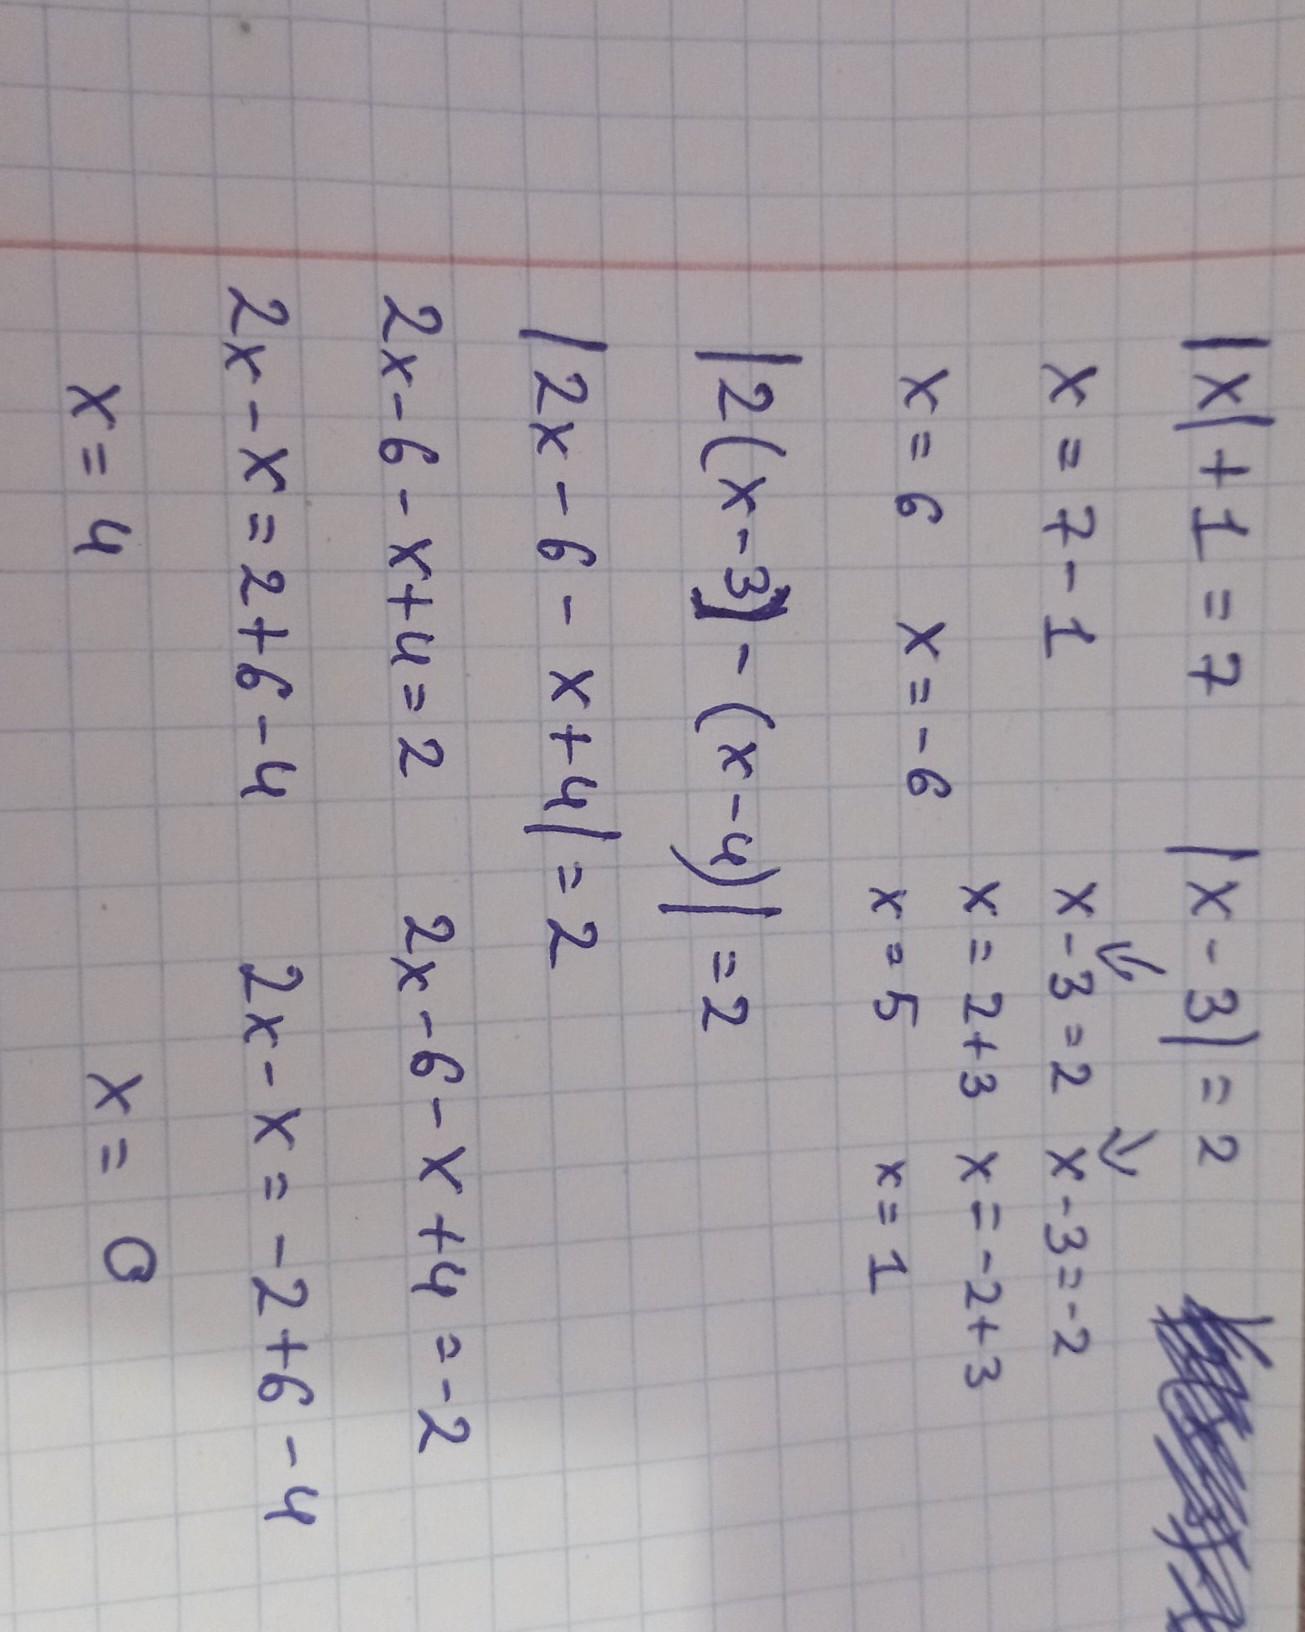 |x|+1=7
x=7-1
x=6 x=-6
|x-3|=2
x-3=2 x-3=-2
x=2+3 x=-2+3
x=5 x=1
|2(x-3)-(x-4)|=2
|2x-6-x+4|=2
2x-6-x+4=2 2x-6-x+4=-2
2x-x=2+6-4 2x-x=-2+6-4
x=4 x=0